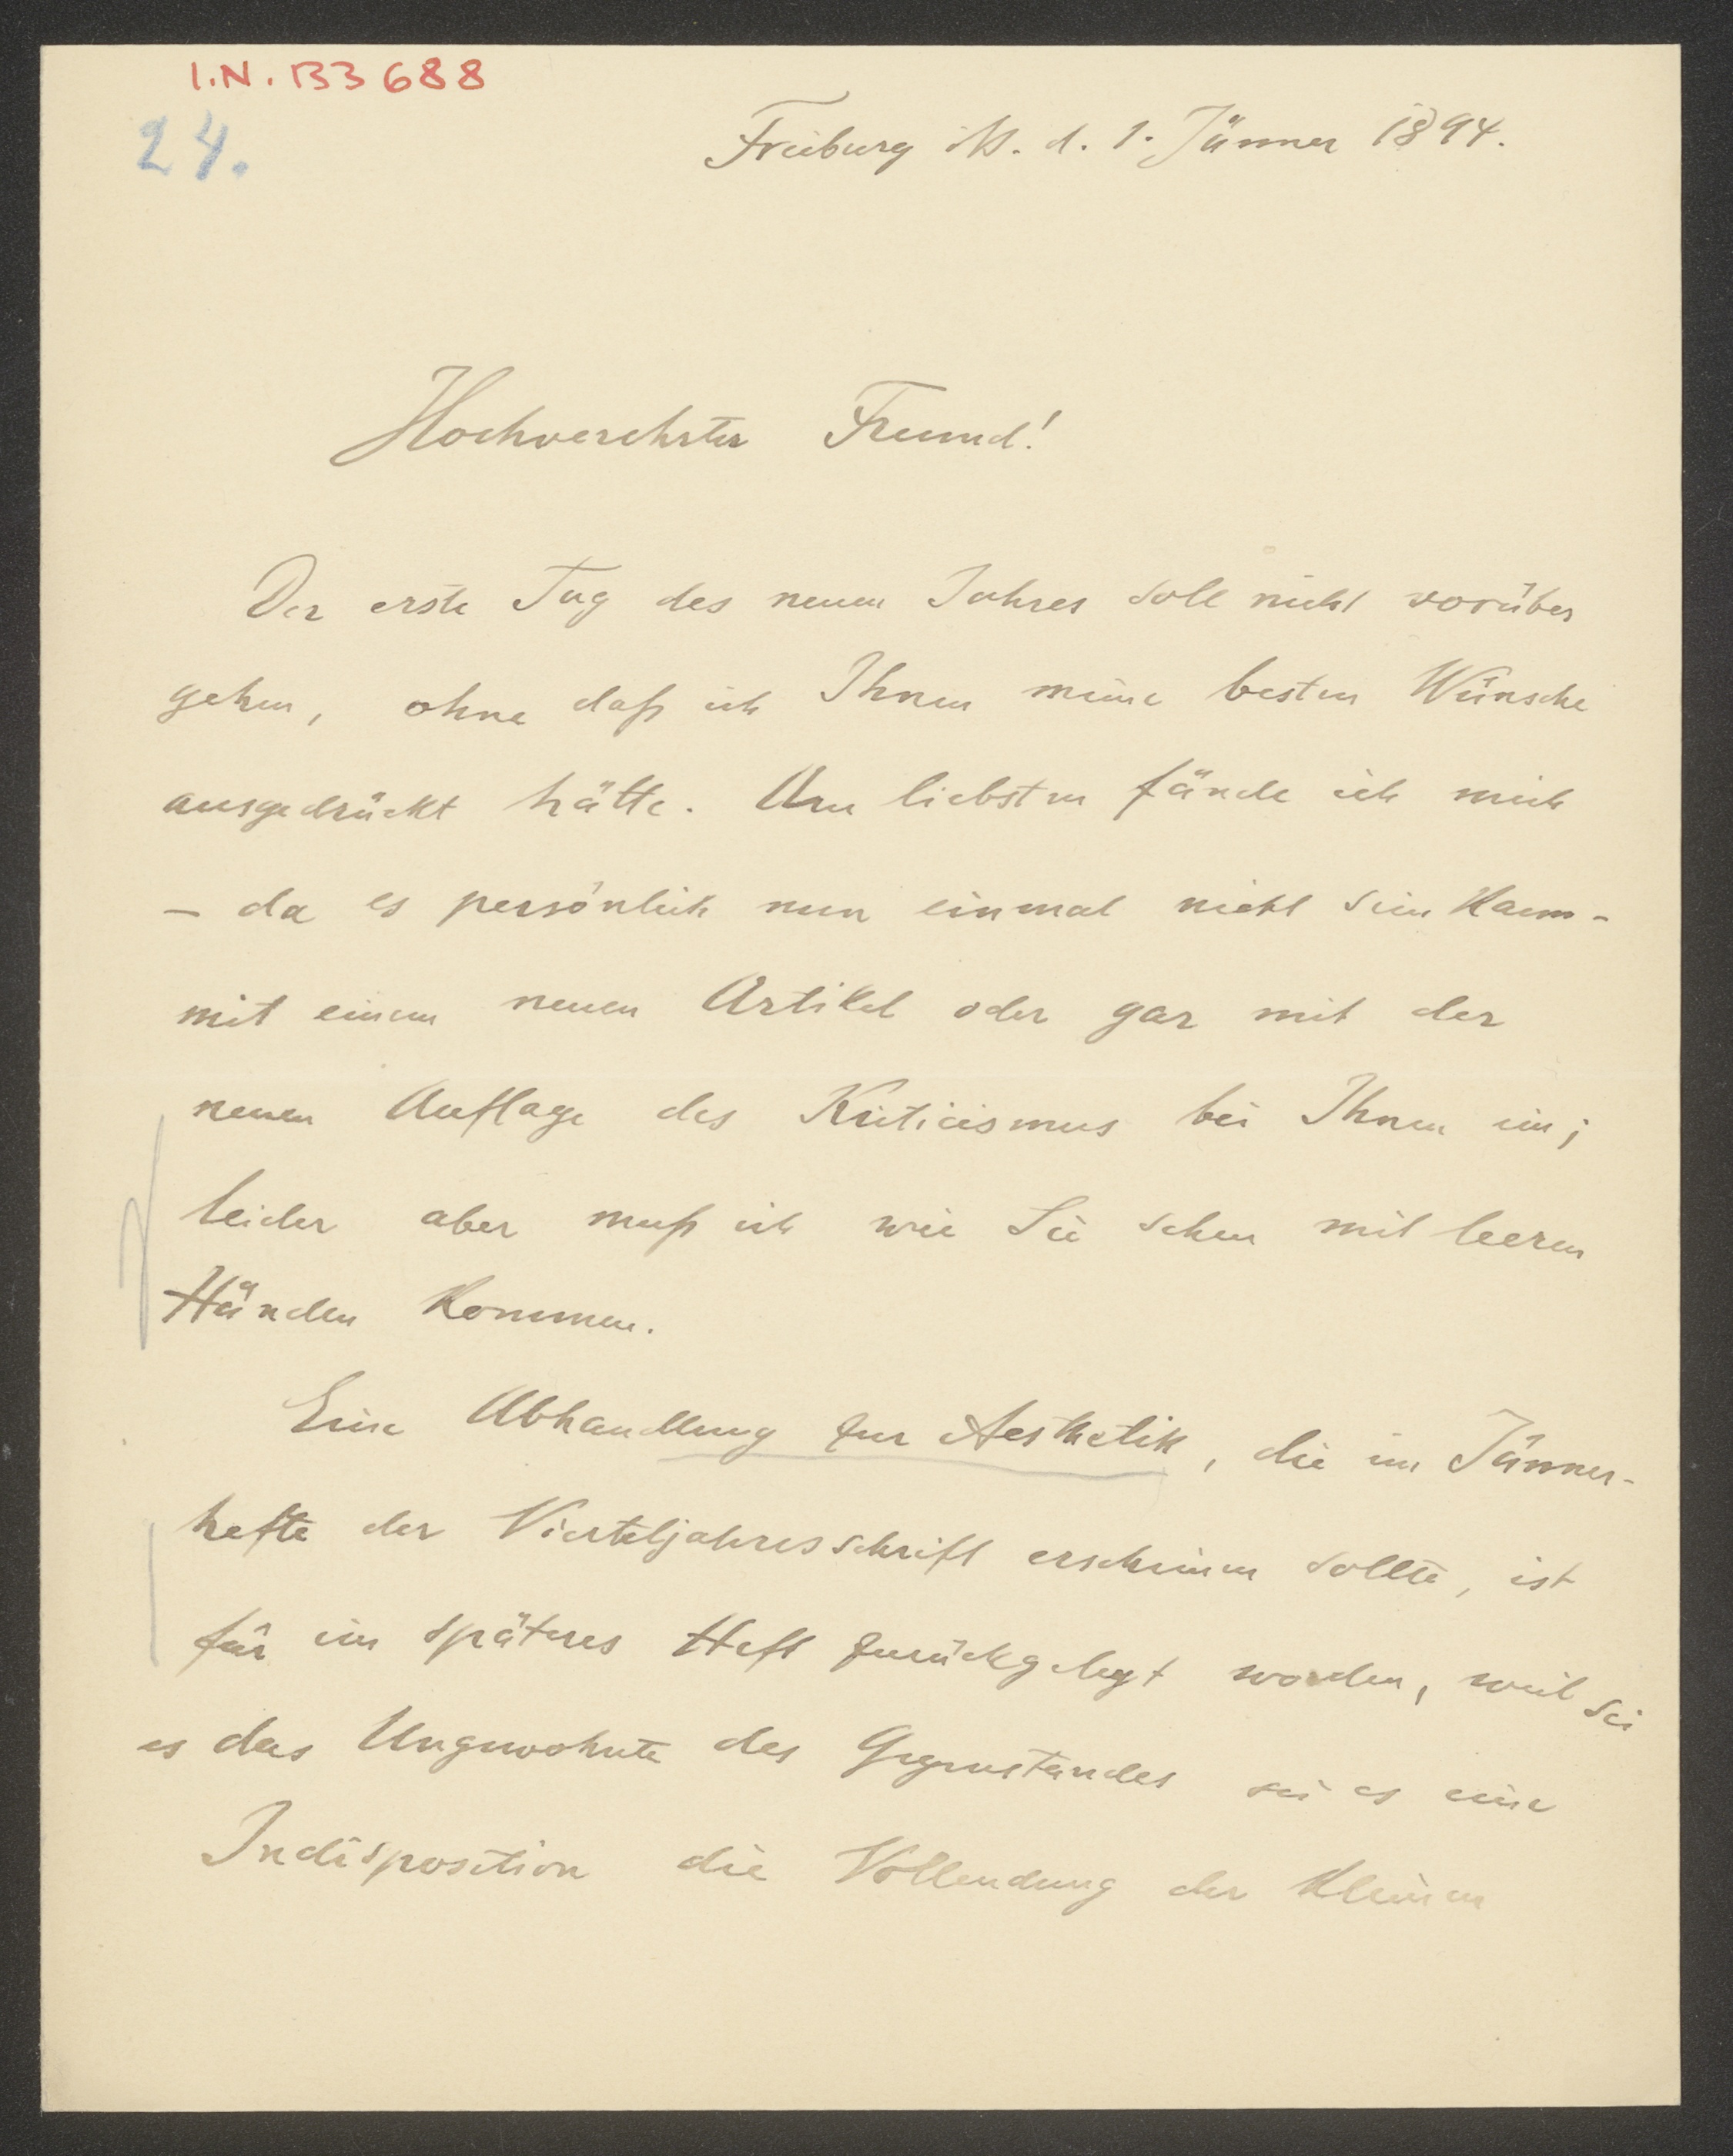 I.N. 133688
24.
Freiburg i/B. d. 1. Jänner 1894.
Hochverehrter Freund!
Der erste Tag des neuen Jahres soll nicht vorüber
gehen, ohne daß ich Ihnen meine besten Wünsche
ausgedrückt hätte. Am liebsten fände ich mich
– da es persönlich nun einmal nicht sein kann –
mit einem neuen Artikel oder gar mit der
neuen Auflage des Kriticismus bei Ihnen ein;
leider aber muß ich wie Sie sehen mit leeren
Händen kommen.
Eine Abhandlung zur Aesthetik, die im Jänner-
hefte der Vierteljahresschrift erscheinen sollte, ist
für ein späteres Heft zurückgelegt worden, weil sei
es das Ungewohnte des Gegenstandes sei es eine
Indisposition die Vollendung der kleinen